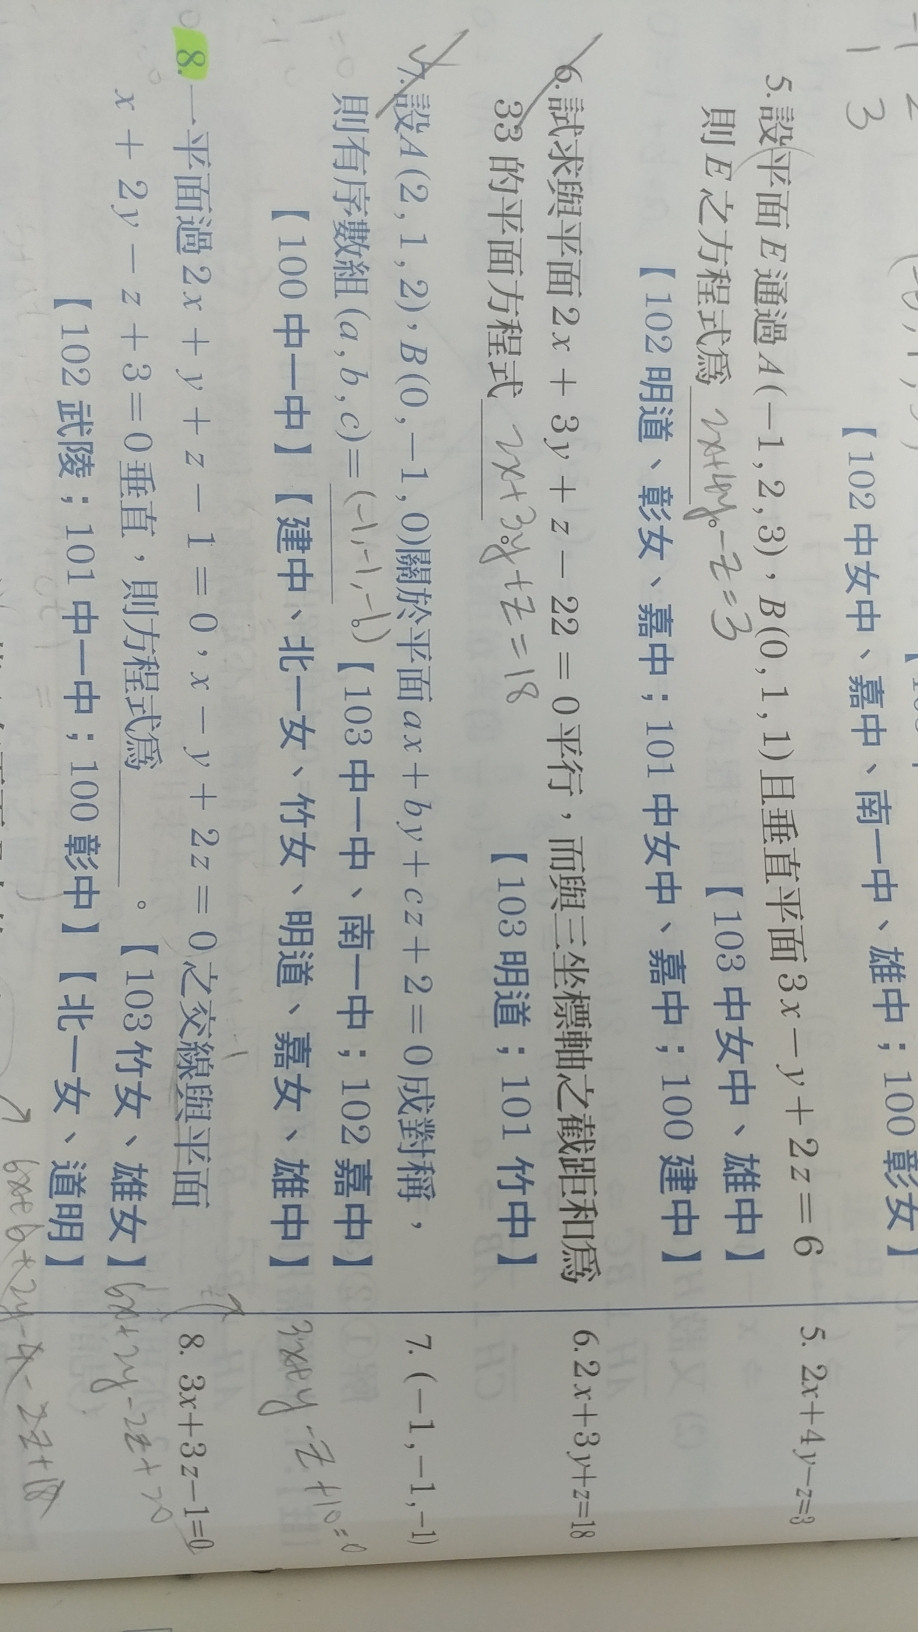 【102 中女中、嘉中、南一中、雄中；100 彰女】
5.設平面E通過A(−1,2,3)，B(0,1,1)且垂直平面3x−y+2z=6
則E之方程式為 2x+4y−z=3 【103 中女中、雄中】
【102 明道、彰女、嘉中；101 中女中、嘉中；100 建中】
5. 2x+4y−z=3
6.試求與平面2x+3y+z−22=0平行，而與三坐標軸之截距和為
33的平面方程式 2x+3y+z=18 【103 明道；101 竹中】
6. 2x+3y+z=18
7.設A(2,1,2)，B(0,−1,0)關於平面ax+by+cz+2=0成對稱，
則有序數組(a,b,c)= (−1,−1,−1) 【103 中一中、南一中；102 嘉中】
【100 中一中】【建中、北一女、竹女、明道、嘉女、雄中】
7. (−1,−1,−1)
8.一平面過2x+y+z−1=0，x−y+2z=0之交線與平面
x+2y−z+3=0垂直，則方程式為 。【103 竹女、雄女】
【102 武陵；101 中一中；100 彰中】【北一女、道明】
8. 3x+3z−1=0